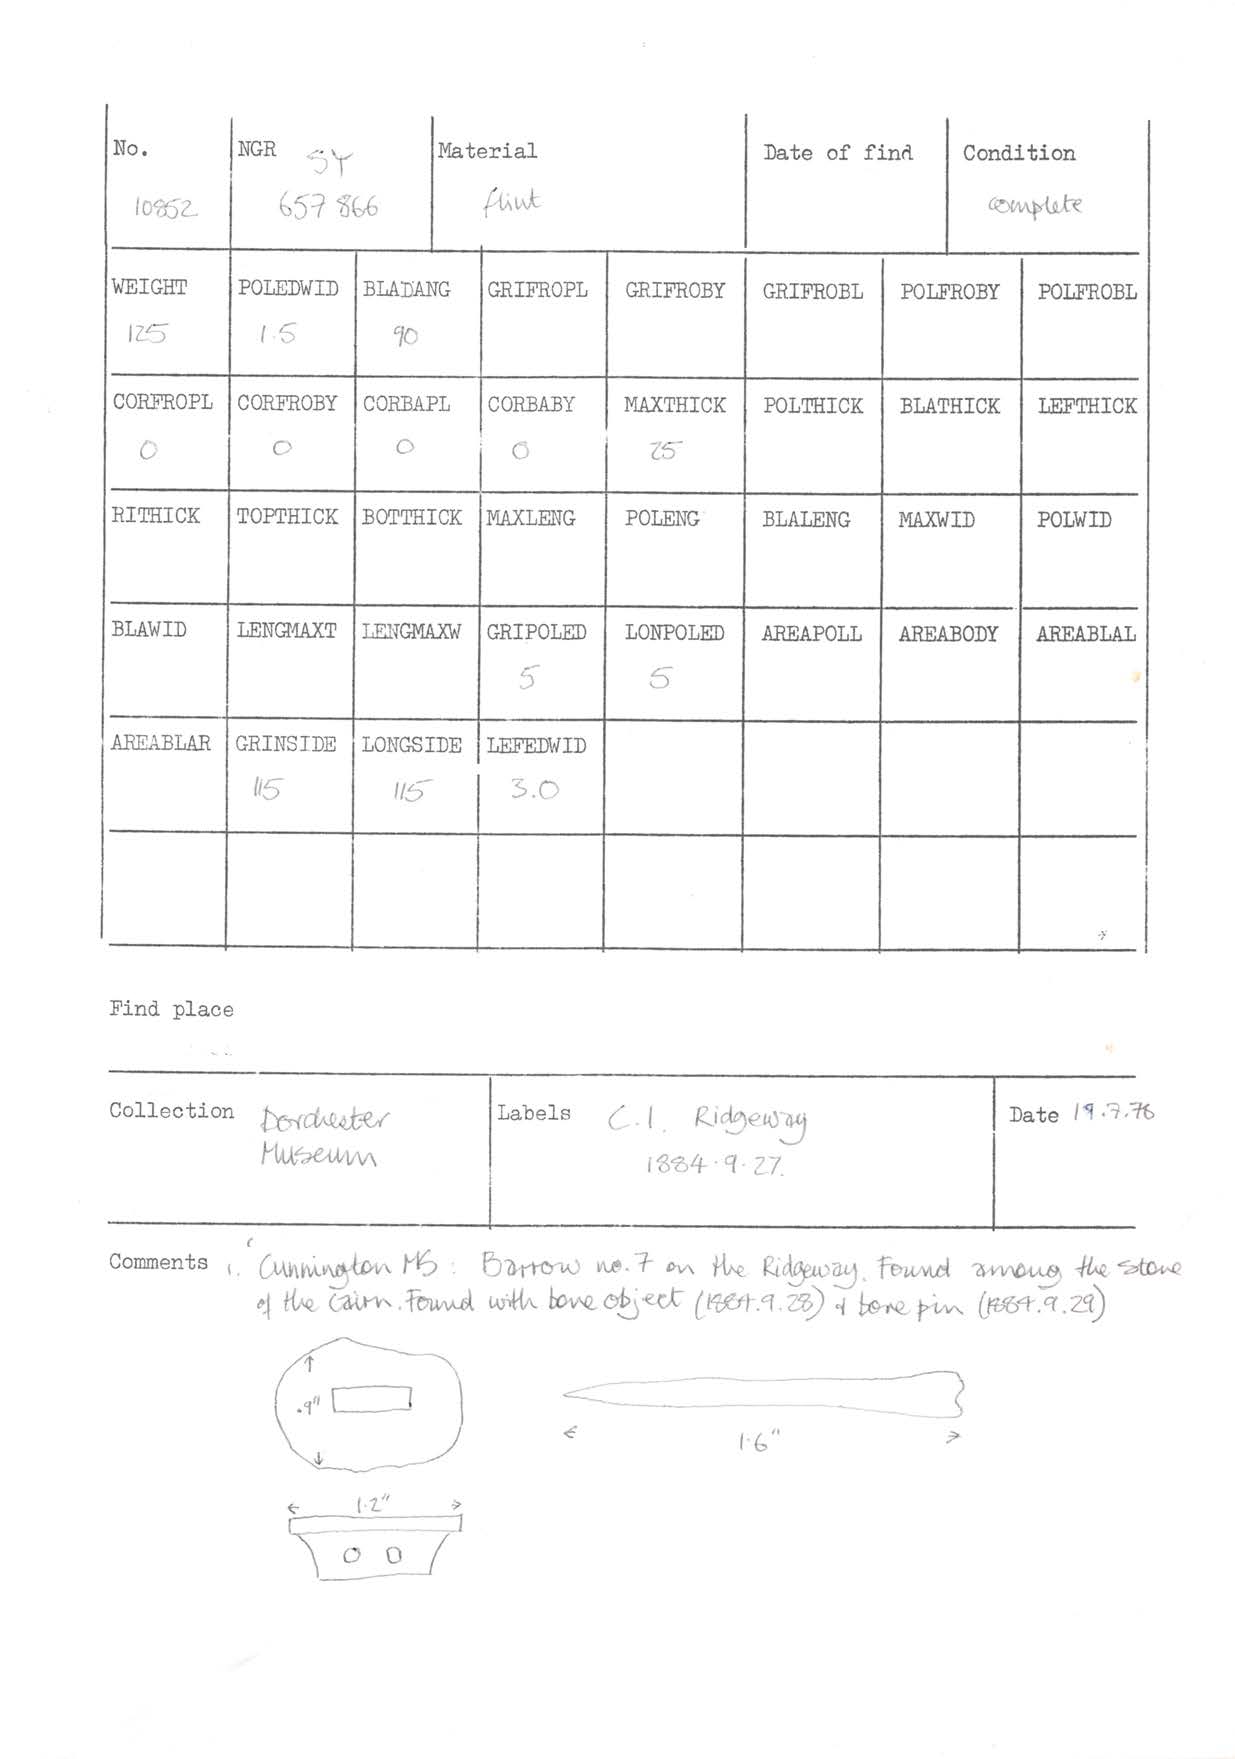 No. NGR SY Material Date of find Condition
10852 657 866 flint complete
WEIGHT POLEDWID BLADANG GRIFROPL GRIFROBY GRIFROBL POLFROBY POLFROBL
125 1.5 90
CORFROPL CORFROBY CORBAPL CORBABY MAXTHICK POLTHICK BLATHICK LEFTHICK
0 0 0 0 25
RITHICK TOPTHICK BOTTHICK MAXLENG POLENG BLALENG MAXWID POLWID
BLAWID LENGMAXT LENGMAXW GRIPOLED LONPOLED AREAPOLL AREABODY AREABLAL
5 5
AREABLAR GRINSIDE LONGSIDE LEFEDWID
115 115 3.0
Find place
Collection Dorchester Labels C.I. Ridgeway Date 19.7.78
Museum 1884.9.27.
Comments 1. 'Cunnington MS: Barrow no.7 on the Ridgeway. Found among the stone
of the cairn. Found with bone object (1884.9.28) & bone pin (1884.9.29)
.9"
1.6"
1.2"